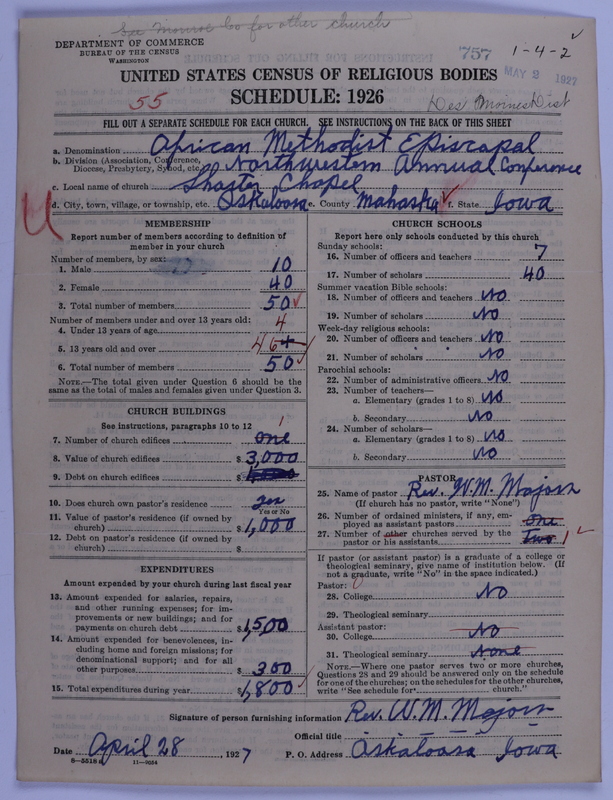 See Monroe Co for other church
DEPARTMENT OF COMMERCE
BUREAU OF THE CENSUS
WASHINGTON
757 1-4-2
MAY 2 1927
UNITED STATES CENSUS OF RELIGIOUS BODIES
55 SCHEDULE: 1926 Des Moines Dist
FILL OUT A SEPARATE SCHEDULE FOR EACH CHURCH. SEE INSTRUCTIONS ON THE BACK OF THIS SHEET
a. Denomination African Methodist Episcapal
b. Division (Association, Conference, Diocese, Presbytery, Synod, etc.) Northwestern Annual Conference
c. Local name of church Shaster Chapel
d. City, town, village, or township, etc. Oskaloosa e. County Mahaska f. State Iowa
MEMBERSHIP
Report number of members according to definition of
member in your church
Number of members, by sex:
1. Male 10
2. Female 40
3. Total number of members 50
Number of members under and over 13 years old:
4. Under 13 years of age 4
5. 13 years old and over 46
6. Total number of members 50
NOTE.—The total given under Question 6 should be the
same as the total of males and females given under Question 3.
CHURCH BUILDINGS
See instructions, paragraphs 10 to 12
7. Number of church edifices one 1
8. Value of church edifices $ 3,000
9. Debt on church edifices $
10. Does church own pastor's residence yes
Yes or No
11. Value of pastor's residence (if owned by
church) $ 1,000
12. Debt on pastor's residence (if owned by
church) $
EXPENDITURES
Amount expended by your church during last fiscal year
13. Amount expended for salaries, repairs,
and other running expenses; for im-
provements or new buildings; and for
payments on church debt $ 1,500
14. Amount expended for benevolences, in-
cluding home and foreign missions; for
denominational support; and for all
other purposes $ 300
15. Total expenditures during year $ 1,800
CHURCH SCHOOLS
Report here only schools conducted by this church
Sunday schools:
16. Number of officers and teachers 7
17. Number of scholars 40
Summer vacation Bible schools:
18. Number of officers and teachers No
19. Number of scholars No
Week-day religious schools:
20. Number of officers and teachers No
21. Number of scholars No
Parochial schools:
22. Number of administrative officers No
23. Number of teachers—
a. Elementary (grades 1 to 8) No
b. Secondary No
24. Number of scholars—
a. Elementary (grades 1 to 8) No
b. Secondary No
PASTOR
25. Name of pastor Rev. W.M. Majors
(If church has no pastor, write "None")
26. Number of ordained ministers, if any, em-
ployed as assistant pastors one
27. Number of other churches served by the
pastor or his assistants Two 1
If pastor (or assistant pastor) is a graduate of a college or
theological seminary, give name of institution below. (If
not a graduate, write "No" in the space indicated.)
Pastor:
28. College No
29. Theological seminary
Assistant pastor:
30. College No
31. Theological seminary None
NOTE.—Where one pastor serves two or more churches,
Questions 28 and 29 should be answered only on the schedule
for one of the churches; on the schedules for the other churches,
write "See schedule for church."
Signature of person furnishing information Rev. W.M. Majors
Official title
Date April 28, 1927 P. O. Address Oskaloosa Iowa
8—5518a 11—9054